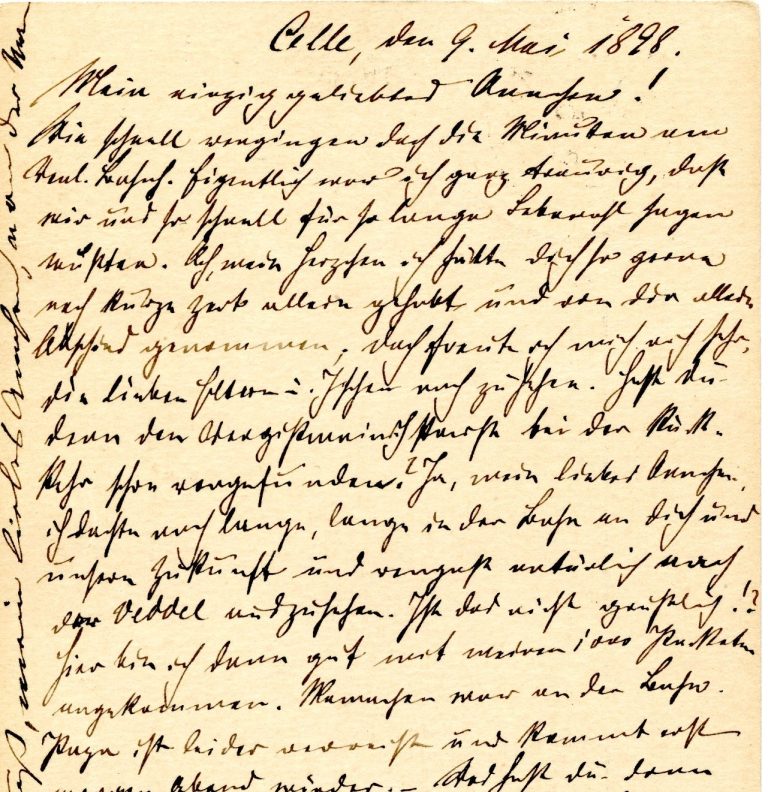 Celle, den 9. Mai 1898.
Mein einzig geliebtes Annchen!
Wie schnell vergingen doch die Minuten am
Venl. Bahnh. Eigentlich war ich ganz traurig, daß
wir uns so schnell für so lange Lebewohl sagen
mußten. Ach, mein Herzchen ich hätte dich so gerne
noch kurze Zeit allein gehabt und von dir allein
Abschied genommen, doch freute ich mich auch sehr,
die lieben Eltern u. noch zu sehen. Hast du
denn den Vergißmeinnichtstrauß bei der Rück-
kehr schon vorgefunden? Ja, mein liebes Annchen,
ich dachte noch lange, lange in der Bahn an dich und
unsere Zukunft und vergaß natürlich nach
der Veddel auszusehen. Ist das nicht gräßlich!?
Hier bin ich dann gut mit meinen 1000 Packeten
angekommen. Mamachen war an der Bahn.
Papa ist leider verreist und kommt erst
morgen Abend wieder. – Was hast du denn
mein liebes Annchen, von der